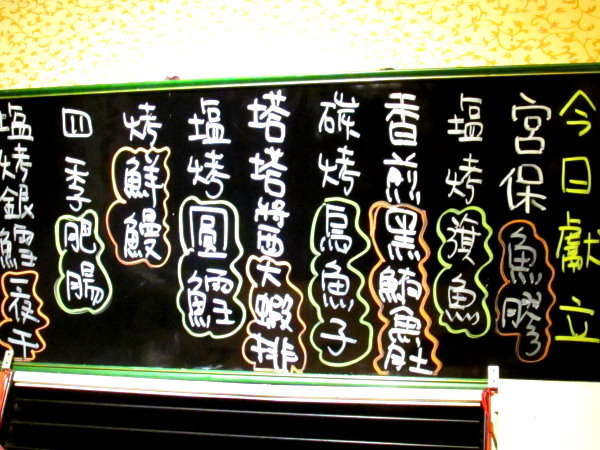 今日獻立
宮保魚膠
塩烤旗魚
香煎黑鮪魚肚
碳烤烏魚子
塔塔將西大蝦排
塩烤圓鱈
烤鮮鰻
四季肥腸
塩烤銀鱈一夜干